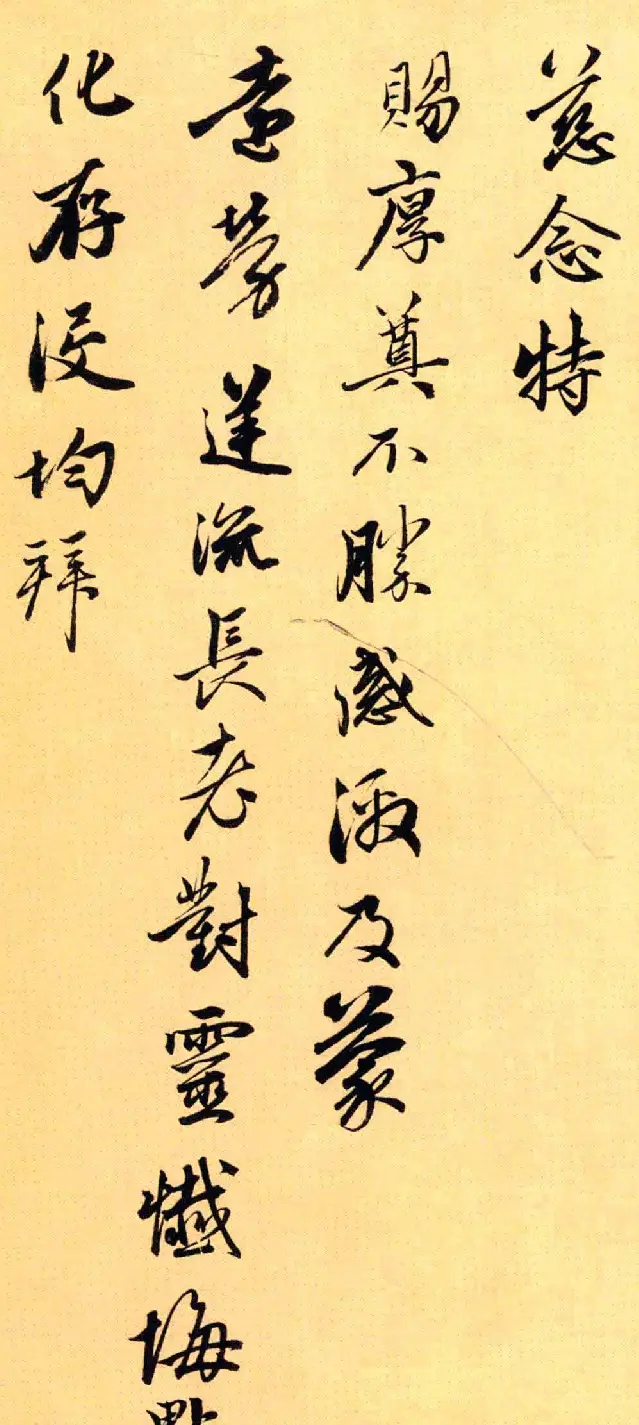 慈念特
賜厚奠不勝感激及蒙
遠勞達流長老對靈懺悔點
化存沒均拜